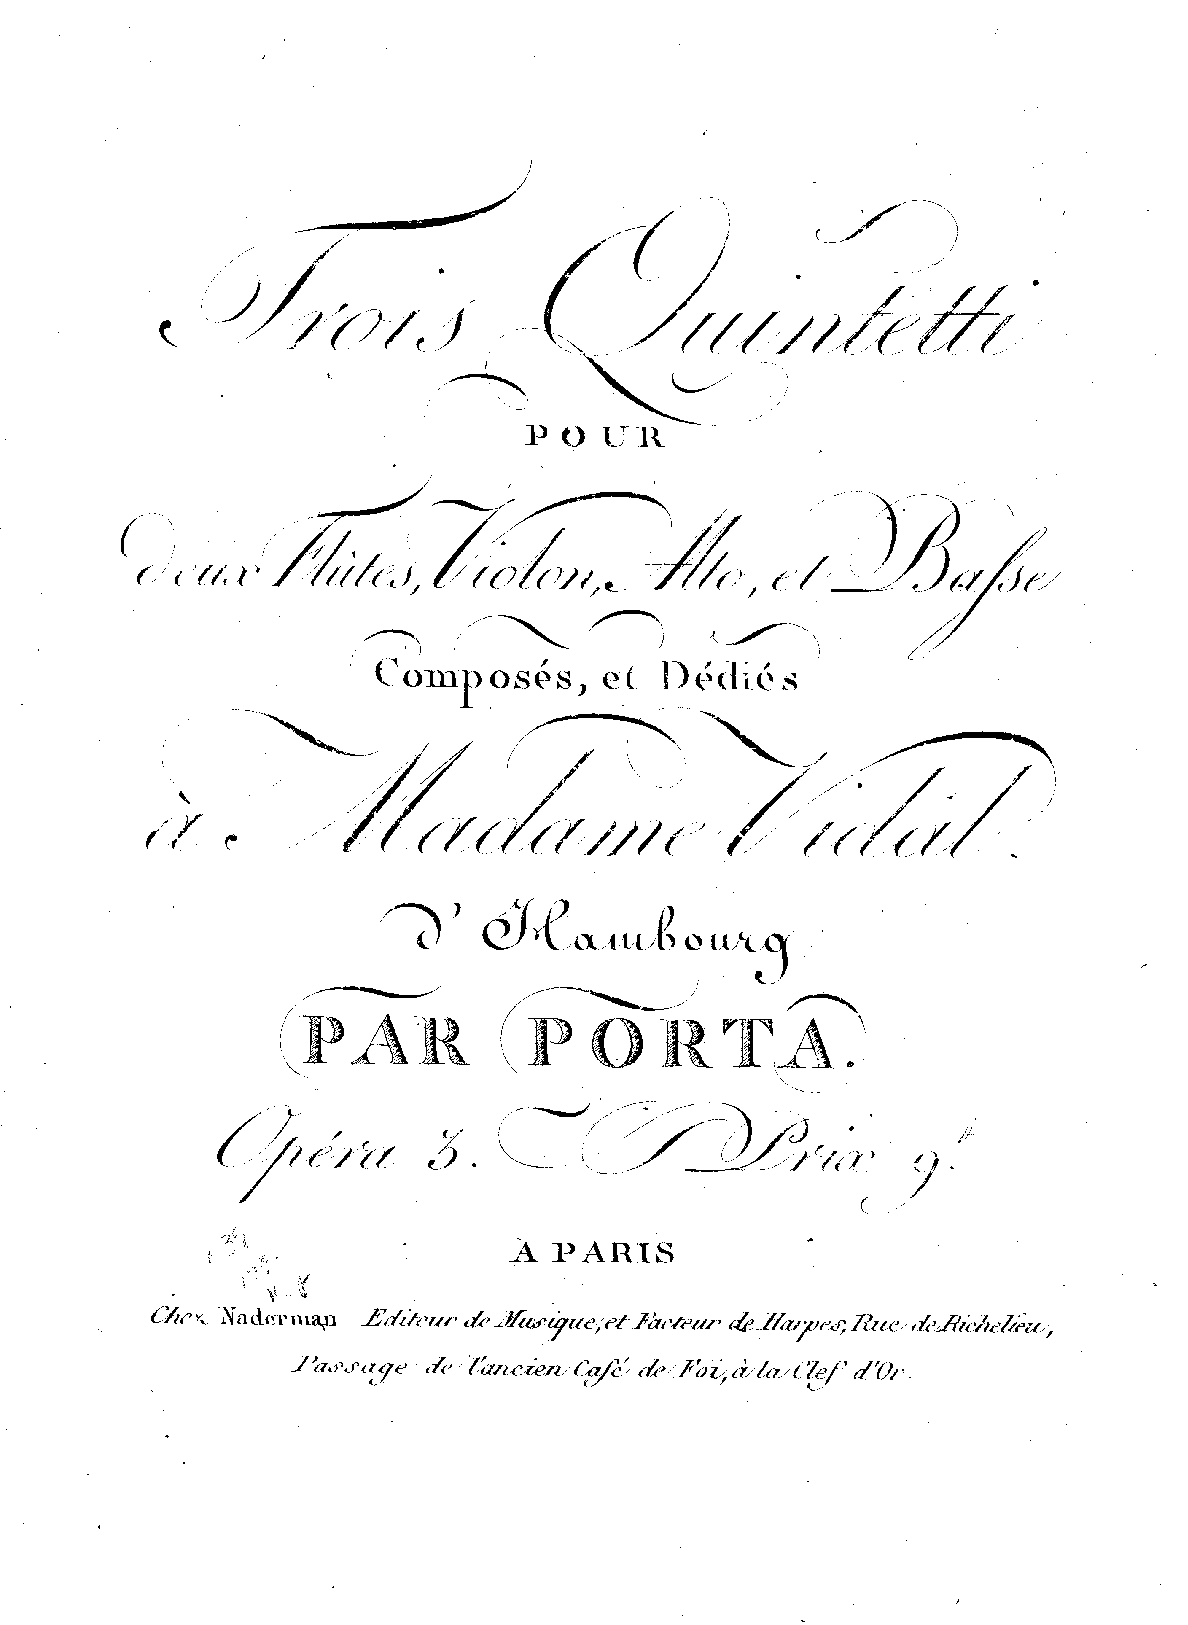 Trois Quintetti
POUR
deux Flûtes, Violon, Alto, et Basse
Composés, et Dédiés
à Madame Vidal.
d'Hambourg
PAR PORTA.
Opéra 3. Prix 9.tt
A PARIS
Chez Naderman Editeur de Musique, et Facteur de Harpes, Rue de Richelieu,
Passage de l'ancien Café de Foi, à la Clef d'Or.